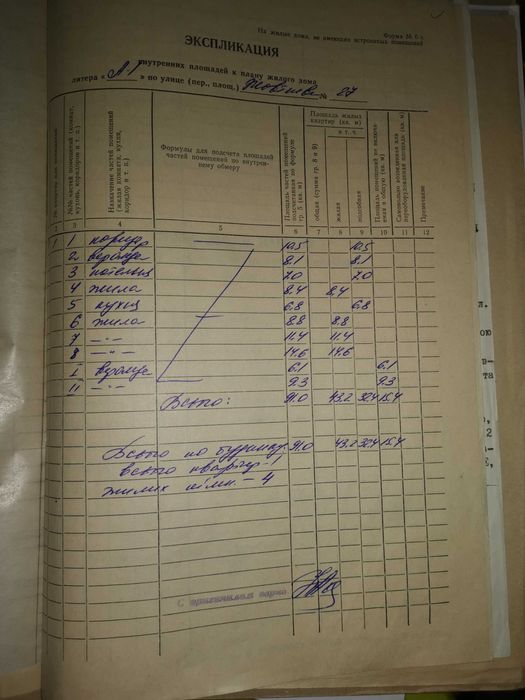 Форма № 6-а
На жилые дома, не имеющие встроенных помещений
ЭКСПЛИКАЦИЯ
внутренних площадей к плану жилого дома
литера « А1 » по улице (пер., площ.) № 27
№№ частей помещений (комнат, кухонь, коридоров и т. п.)
Назначение частей помещений (жилая комната, кухня, коридор и т. п.)
Формулы для подсчета площадей частей помещений по внутреннему обмеру
Площадь частей помещений подсчитанная по формуле гр. 5 (кв. м)
Площадь жилых квартир (кв. м)
общая (сумма гр. 8 и 9)
в т. ч.
жилая
подсобная
Самовольно возведенная или переоборудованная площадь (кв. м)
Примечание
3 4 5 6 7 8 9 10 11 12
1 1 коридо 10.5 10.5
2 веранда 8.1 8.1
3 котельн 7.0 7.0
4 жила 8.4 8.4
5 кухня 6.8 6.8
6 жила 8.8 8.8
7 —·— 11.4 11.4
8 —"— 14.6 14.6
I веранда 6.1 6.1
II —·— 9.3 9.3
Всего: 91.0 43.2 32.4 15.4
Всього по будинку: 91.0 43.2 32.4 15.4
всього квартир - 1
жилих кімн. - 4
С оригиналом верно